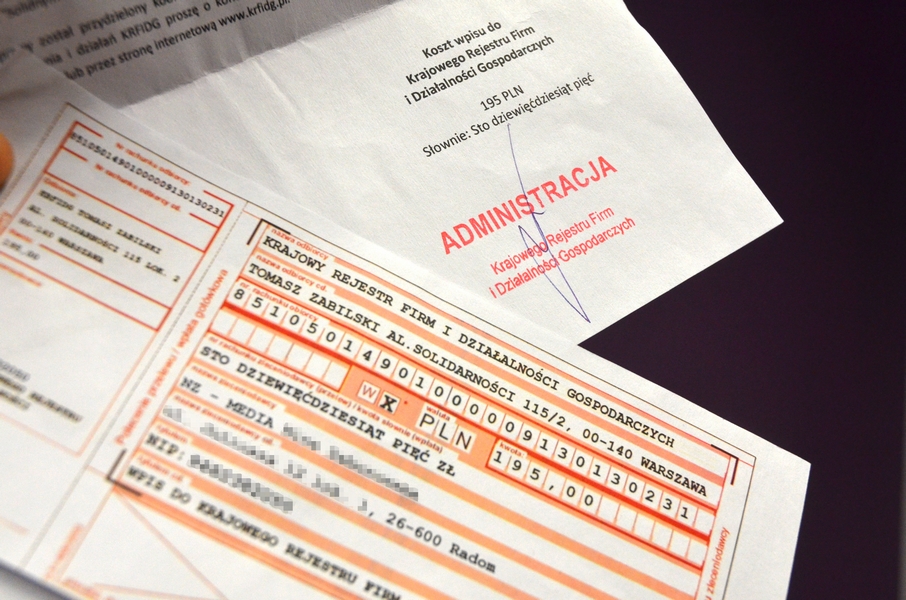 został przydzielony
i działań KRFIDG proszę o
lub przez stronę internetową www.krfidg.pl
Koszt wpisu do
Krajowego Rejestru Firm
i Działalności Gospodarczych
195 PLN
Słownie: Sto dziewięćdziesiąt pięć
ADMINISTRACJA
Krajowego Rejestru Firm
i Działalności Gospodarczych
nr rachunku odbiorcy
85105014901000009130130231
nr rachunku odbiorcy cd.
KRFIDG TOMASZ ZABILSKI
AL. SOLIDARNOŚCI 115 LOK. 2
00-140 WARSZAWA
Polecenie przelewu / wpłata gotówkowa
nazwa odbiorcy
KRAJOWY REJESTR FIRM I DZIAŁALNOŚCI GOSPODARCZYCH
nazwa odbiorcy cd.
TOMASZ ZABILSKI AL.SOLIDARNOŚCI 115/2, 00-140 WARSZAWA
nr rachunku odbiorcy
85105014901000009130130231
W X waluta PLN kwota 195,00
nr rachunku zleceniodawcy (przelew) / kwota słownie (wpłata)
STO DZIEWIĘĆDZIESIĄT PIĘĆ ZŁ
nazwa zleceniodawcy
NZ - MEDIA
nazwa zleceniodawcy cd.
, 26-600 Radom
NIP:
tytułem
WPIS DO KRAJOWEGO REJESTRU FIRM
zleceniodawcy